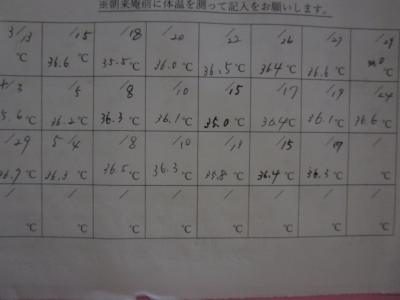 ※朝来庵前に体温を測って記入をお願いします。
3/13 /15 /18 /20 /22 /26 /27 /29
℃ 36.6℃ 35.5℃ 36.0℃ 36.5℃ 36.4℃ 36.6℃ ℃
/5 /8 /10 /15 /17 /19 /24
5.6℃ 36.2℃ 36.3℃ 36.1℃ 35.0℃ 36.4℃ 36.1℃ 36.6℃
/29 5/4 /8 /10 /13 /15 /17 /
36.9℃ 36.3℃ 36.5℃ 36.3℃ 35.8℃ 36.4℃ 36.3℃ ℃
/ / / / / / / /
℃ ℃ ℃ ℃ ℃ ℃ ℃ ℃